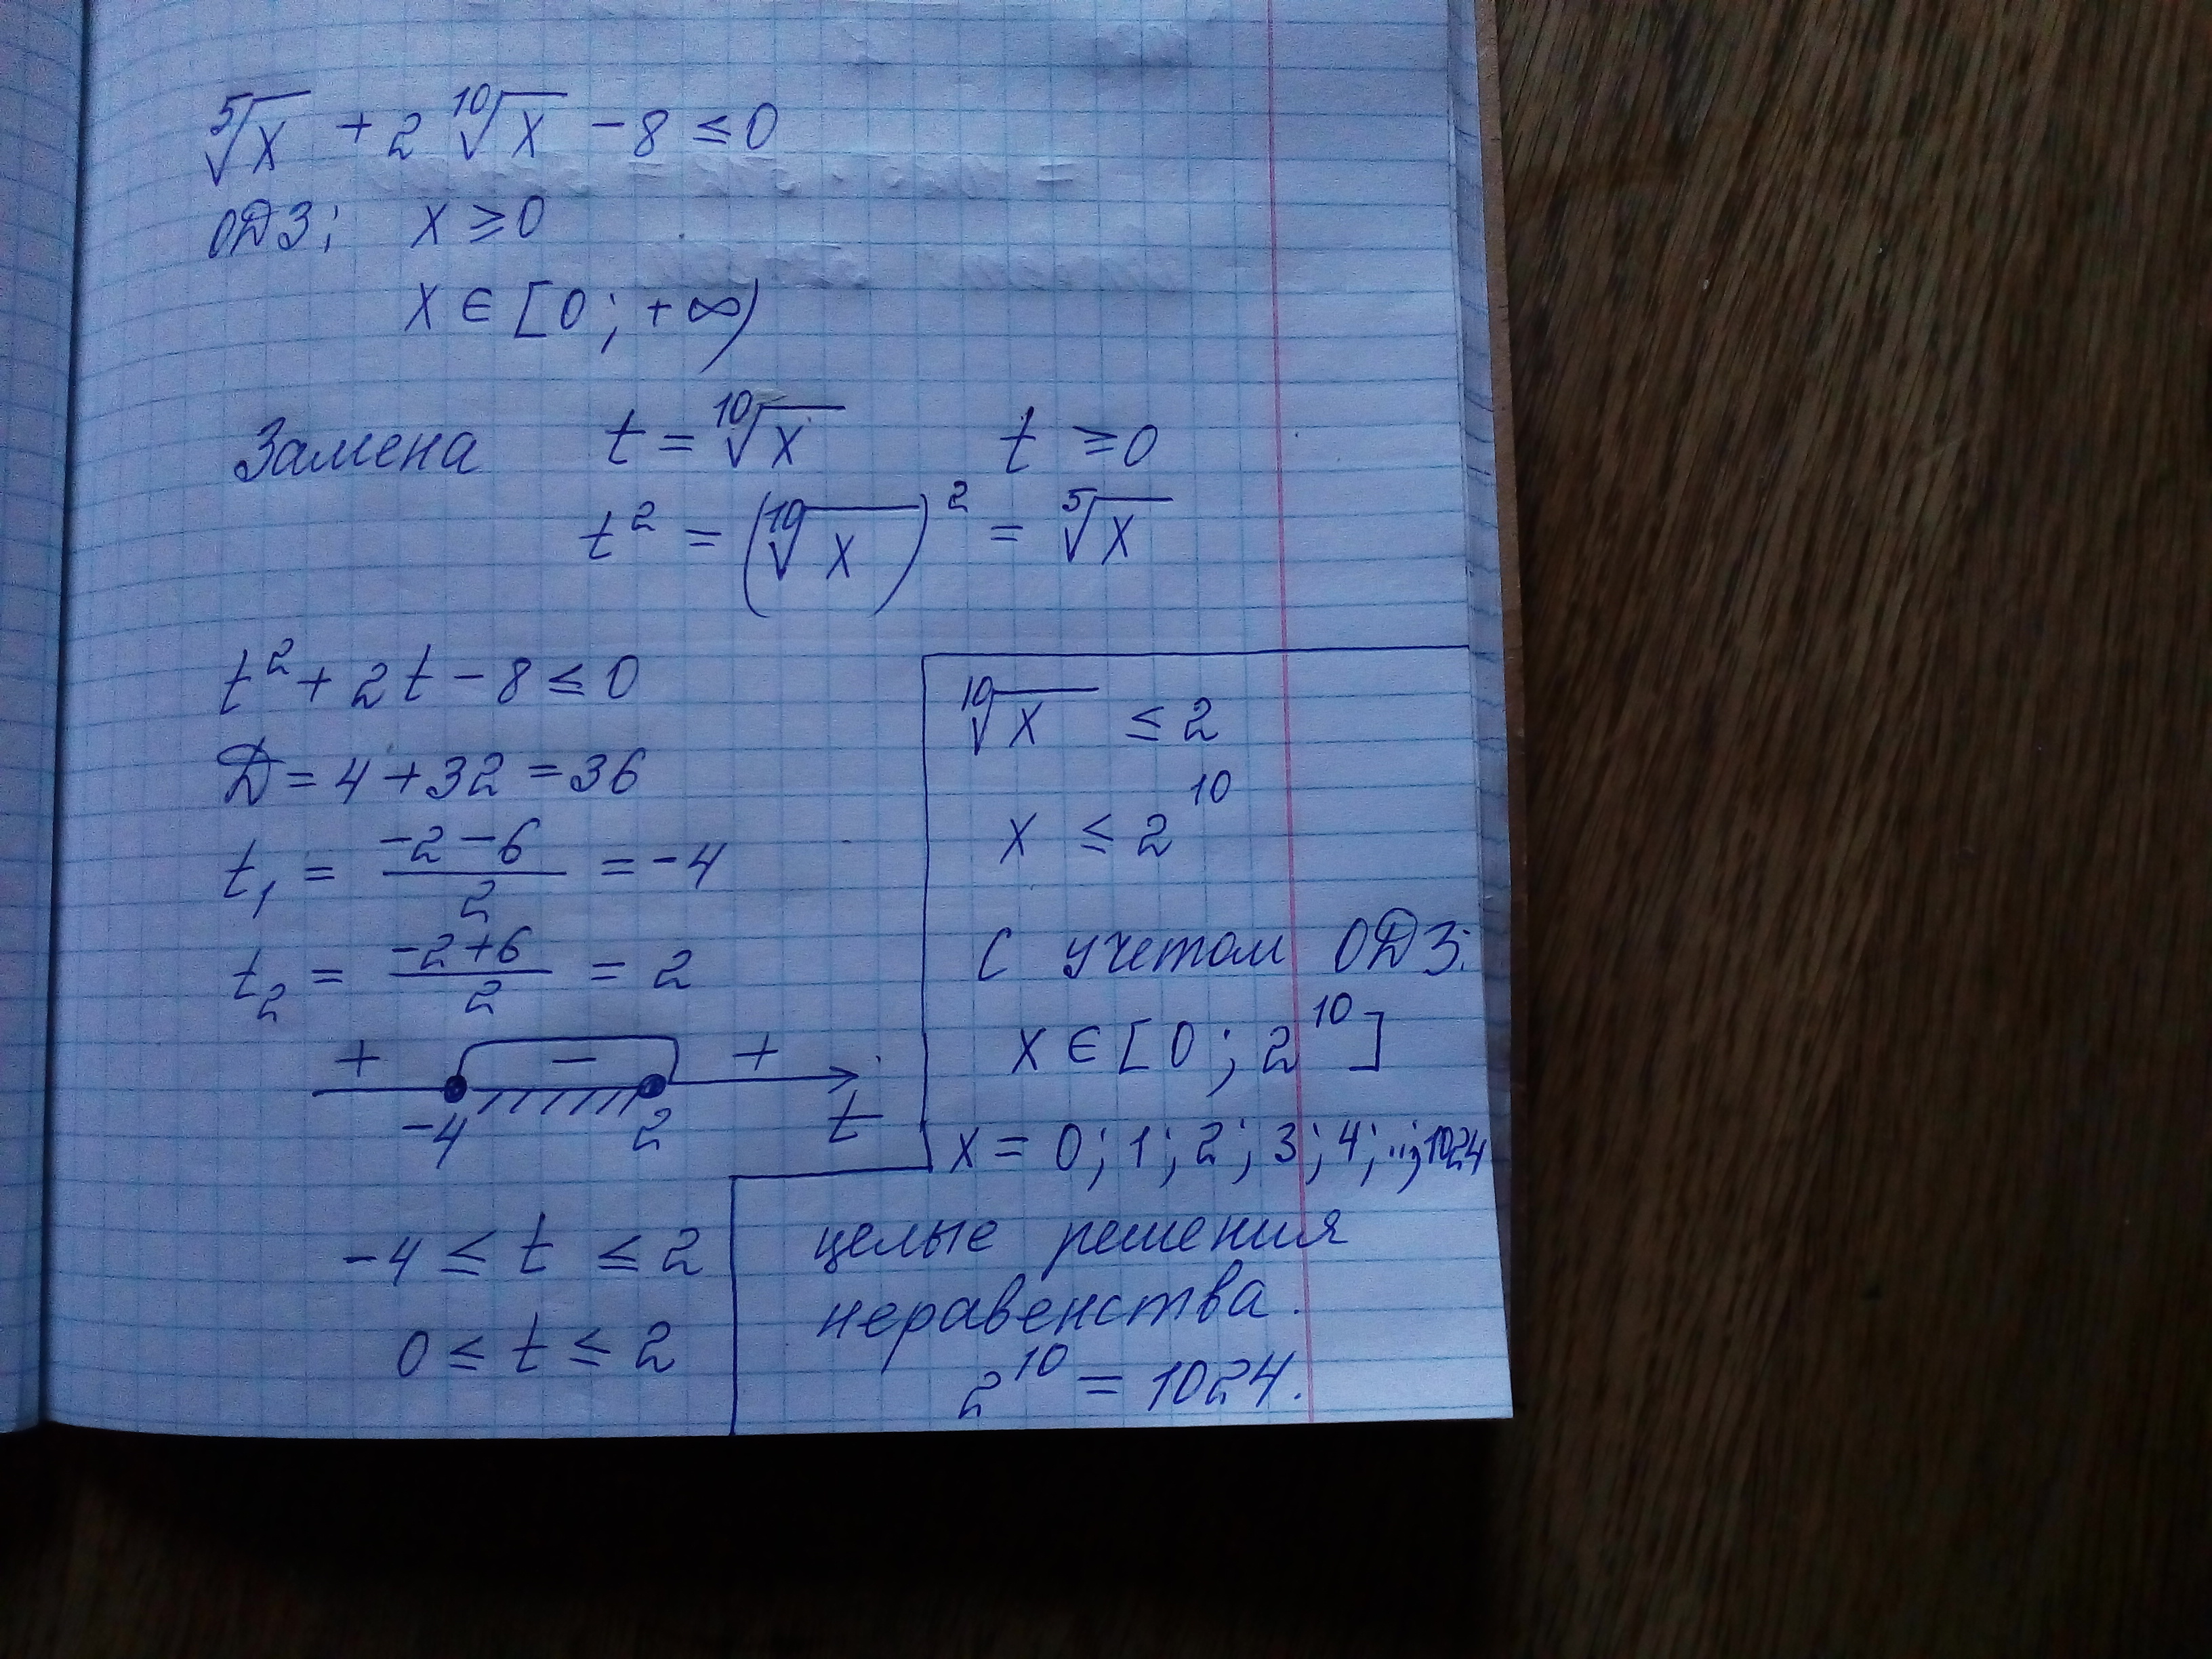 ⁵√x + 2 ¹⁰√x − 8 ≤ 0
ОДЗ: x ≥ 0
x ∈ [0; +∞)
Замена t = ¹⁰√x t ≥ 0
t² = (¹⁰√x)² = ⁵√x
t² + 2t − 8 ≤ 0
Д = 4 + 32 = 36
t₁ = (−2 − 6)/2 = −4
t₂ = (−2 + 6)/2 = 2
+ − +
−4 2 t
−4 ≤ t ≤ 2
0 ≤ t ≤ 2
¹⁰√x ≤ 2
x ≤ 2¹⁰
С учетом ОДЗ:
x ∈ [0; 2¹⁰]
x = 0; 1; 2; 3; 4; ...; 1024
целые решения
неравенства.
2¹⁰ = 1024.